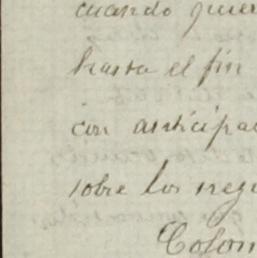 cuando quier
hasta el fin
con anticipa
sobre los neg